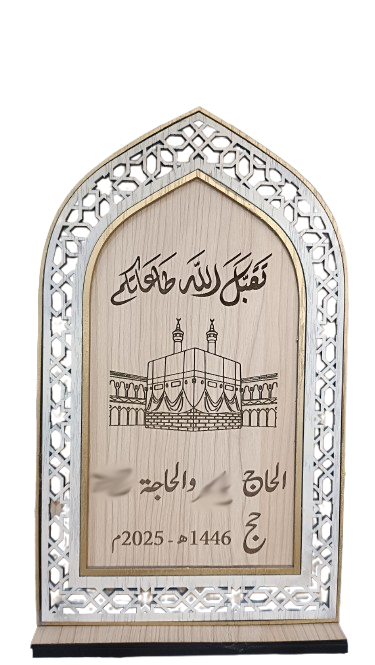 تَقَبَّلَ اللَّه طَاعَاتكُم
الحاج والحاجة
حج 1446هـ - 2025م